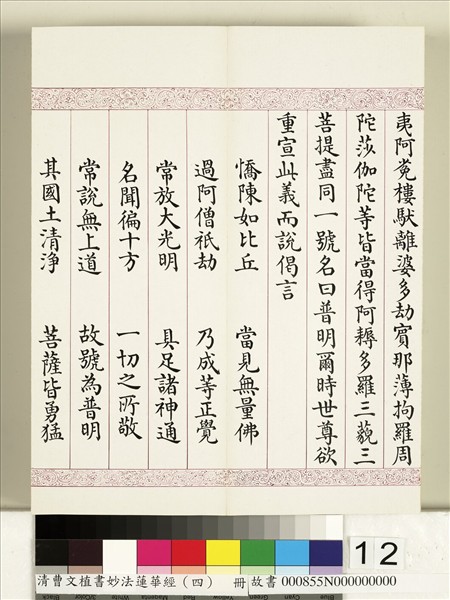 夷阿㝹樓馱離婆多劫賓那薄拘羅周
陀莎伽陀等皆當得阿耨多羅三藐三
菩提盡同一號名曰普明爾時世尊欲
重宣此義而說偈言
憍陳如比丘 當見無量佛
過阿僧祇劫 乃成等正覺
常放大光明 具足諸神通
名聞徧十方 一切之所敬
常說無上道 故號為普明
其國土清淨 菩薩皆勇猛
12
清曹文植書妙法蓮華經（四） 冊 故書 000855N000000000